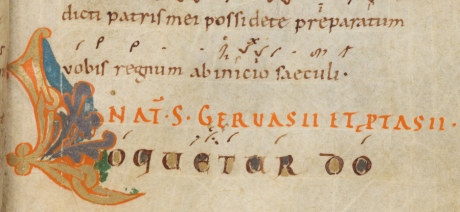 dicti patris mei possidete preparatum
vobis regnum ab inicio saeculi·
IN NAT̄· S· GERVASII ET PTASII·
LOQUETUR DO